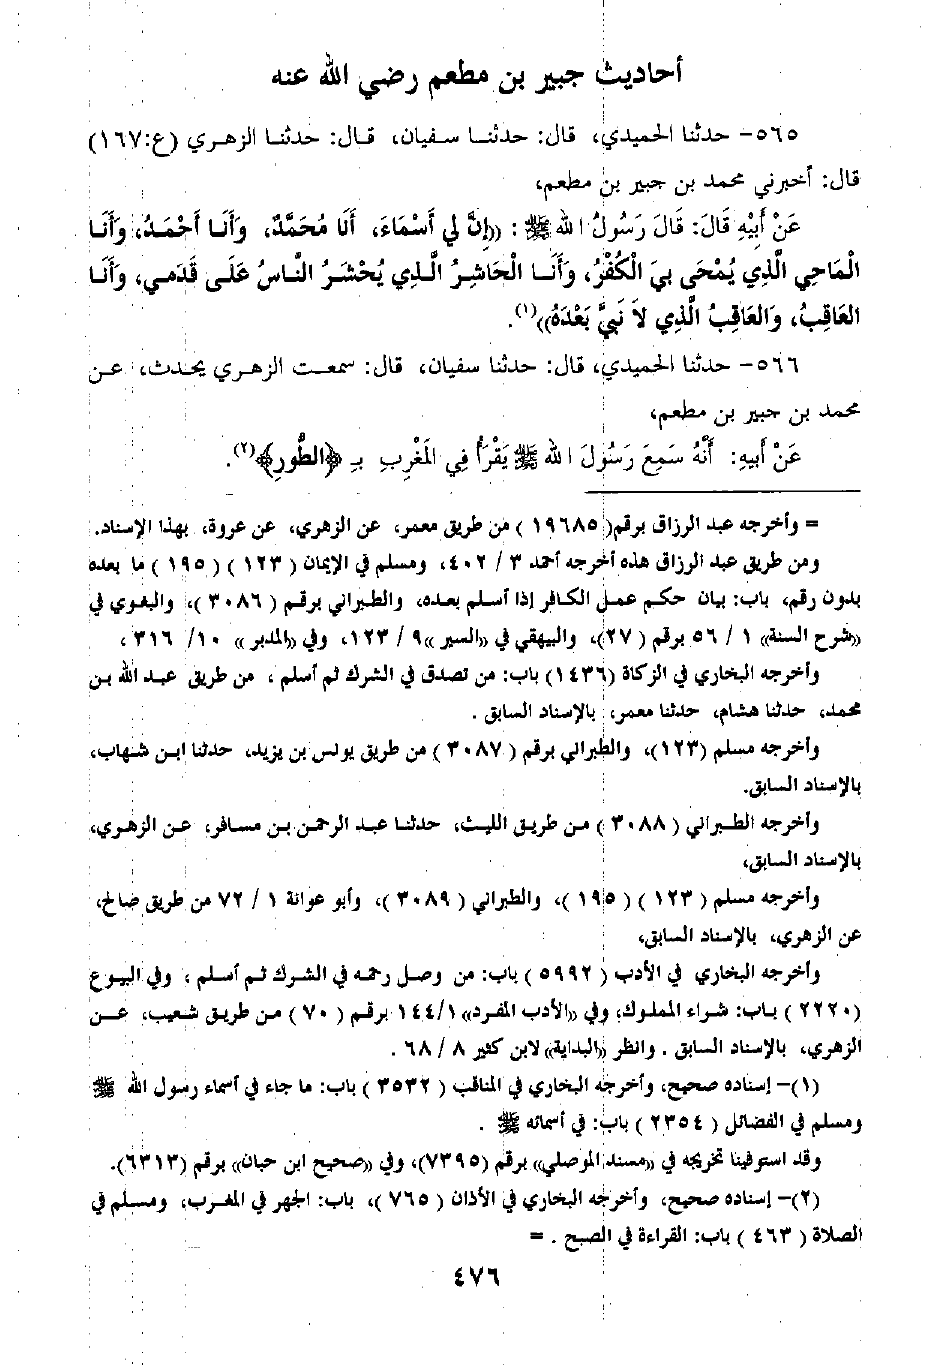 أحاديث جبير بن مطعم رضي الله عنه
٥٦٥- حدثنا الحميدي، قال: حدثنا سفيان، قال: حدثنا الزهري (ع:١٦٧)
قال: أخبرني محمد بن جبير بن مطعم،
عَنْ أَبِيْهِ قَالَ: قَالَ رَسُولُ الله ﷺ : ((إِنَّ لِي أَسْمَاءَ، أَنَا مُحَمَّدٌ، وَأَنَا أَحْمَدُ، وَأَنَا
الْمَاحِي الَّذِي يُمْحَى بِيَ الْكُفْرُ، وَأَنَا الْحَاشِرُ الَّذِي يُحْشَرُ النَّاسُ عَلَى قَدَمِي، وَأَنَا
العَاقِبُ، وَالعَاقِبُ الَّذِي لاَ نَبِيَّ بَعْدَهُ))(١).
٥٦٦- حدثنا الحميدي، قال: حدثنا سفيان، قال: سمعت الزهري يحدث، عن
محمد بن جبير بن مطعم،
عَنْ أَبيهِ: أَنَّهُ سَمِعَ رَسُولَ الله ﷺ يَقْرَأُ فِي المَغْرِبِ بِـ ﴿الطُّورِ﴾(٢).
= وأخرجه عبد الرزاق برقم( ١٩٦٨٥ ) من طريق معمر، عن الزهري، عن عروة، بهذا الإسناد.
ومن طريق عبد الرزاق هذه أخرجه أحمد ٣ / ٤٠٢، ومسلم في الإيمان ( ١٢٣ ) ( ١٩٥ ) ما بعده
بدون رقم، باب: بيان حكم عمل الكافر إذا أسلم بعده، والطبراني برقم ( ٣٠٨٦ )، والبغوي في
((شرح السنة)) ١ / ٥٦ برقم ( ٢٧)، والبيهقي في ((السير ))٩ / ١٢٣، وفي ((المدبر )) ١٠/ ٣١٦ ،
وأخرجه البخاري في الزكاة (١٤٣٦) باب: من تصدق في الشرك ثم أسلم ، من طريق عبد الله بن
محمد، حدثنا هشام، حدثنا معمر، بالإسناد السابق .
وأخرجه مسلم (١٢٣)، والطبراني برقم ( ٣٠٨٧ ) من طريق يونس بن يزيد، حدثنا ابن شهاب،
بالإسناد السابق.
وأخرجه الطبراني ( ٣٠٨٨ ) من طريق الليث، حدثنا عبد الرحمن بن مسافر، عن الزهري،
بالإسناد السابق،
وأخرجه مسلم ( ١٢٣ ) ( ١٩٥ )، والطبراني ( ٣٠٨٩ )، وأبو عوانة ١ / ٧٢ من طريق صالح،
عن الزهري، بالإسناد السابق،
وأخرجه البخاري في الأدب ( ٥٩٩٢ ) باب: من وصل رحمه في الشرك ثم أسلم ، وفي البيوع
(٢٢٢٠ ) باب: شراء المملوك، وفي ((الأدب المفرد)) ١/ ١٤٤ برقم ( ٧٠ ) من طريق شعيب، عن
الزهري، بالإسناد السابق . وانظر ((البداية)) لابن كثير ٨ / ٦٨ .
(١)- إسناده صحيح، وأخرجه البخاري في المناقب ( ٣٥٣٢ ) باب: ما جاء في أسماء رسول الله ﷺ
ومسلم في الفضائل ( ٢٣٥٤ ) باب: في أسمائه ﷺ .
وقد استوفينا تخريجه في ((مسند الموصلي)) برقم (٧٣٩٥)، وفي ((صحيح ابن حبان)) برقم (٦٣١٣).
(٢)- إسناده صحيح، وأخرجه البخاري في الأذان ( ٧٦٥ )، باب: الجهر في المغرب، ومسلم في
الصلاة ( ٤٦٣ ) باب: القراءة في الصبح . =
٤٧٦